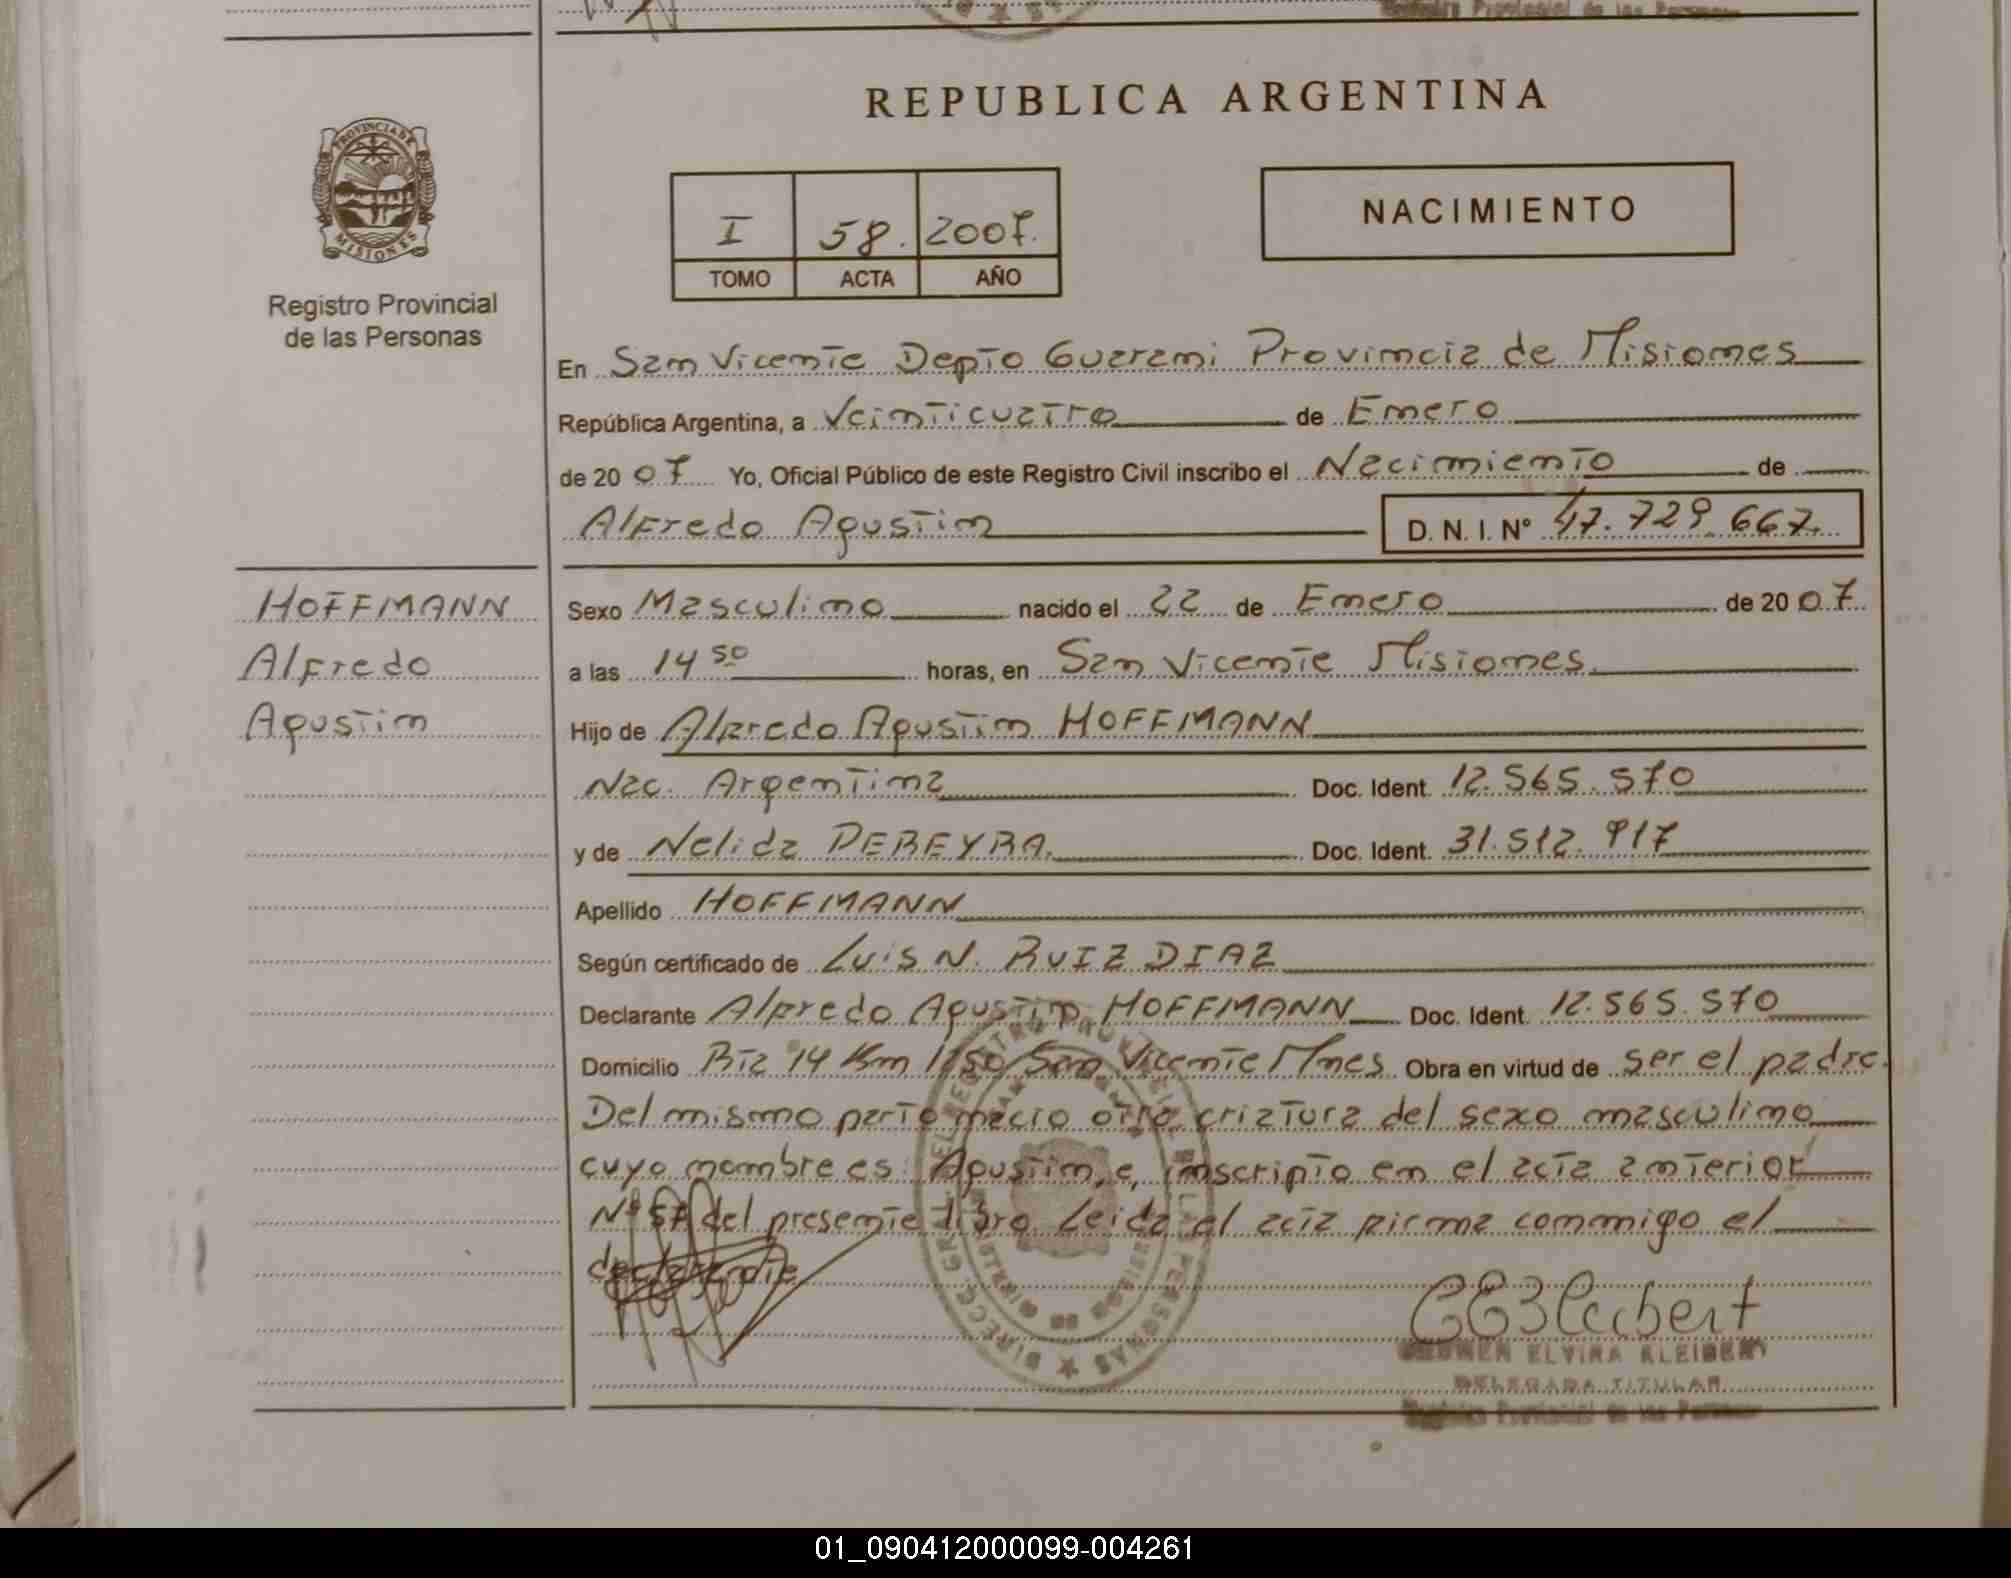 Registro Provincial de las Personas
REPUBLICA ARGENTINA
PROVINCIA DE
MISIONES
Registro Provincial
de las Personas
I 58. 2007.
TOMO ACTA AÑO
NACIMIENTO
En San Vicente Depto Guarani Provincia de Misiones
República Argentina, a Veinticuatro de Enero
de 20 07 Yo, Oficial Público de este Registro Civil inscribo el Nacimiento de
Alfredo Agustin D. N. I. Nº 47.729.667.
HOFFMANN
Alfredo
Agustin
Sexo Masculino nacido el 22 de Enero de 20 07
a las 14 50 horas, en San Vicente Misiones
Hijo de Alfredo Agustin HOFFMANN
Nac. Argentina Doc. Ident. 12.565.570
y de Nelida PEREYRA. Doc. Ident. 31.512.917
Apellido HOFFMANN
Según certificado de Luis N. RUIZ DIAZ
Declarante Alfredo Agustin HOFFMANN Doc. Ident. 12.565.570
Domicilio Rta 14 Km 1250 San Vicente Mnes Obra en virtud de ser el padre.
Del mismo parto nacio otra criatura del sexo masculino
cuyo nombre es: Agustin, e, inscripto en el acta anterior
Nº 57 del presente libro. Leida el acta firma conmigo el
declarante
CE3Kleibert
CARMEN ELVIRA KLEIBERT
DELEGADA TITULAR
Registro Provincial de las Personas
01_090412000099-004261